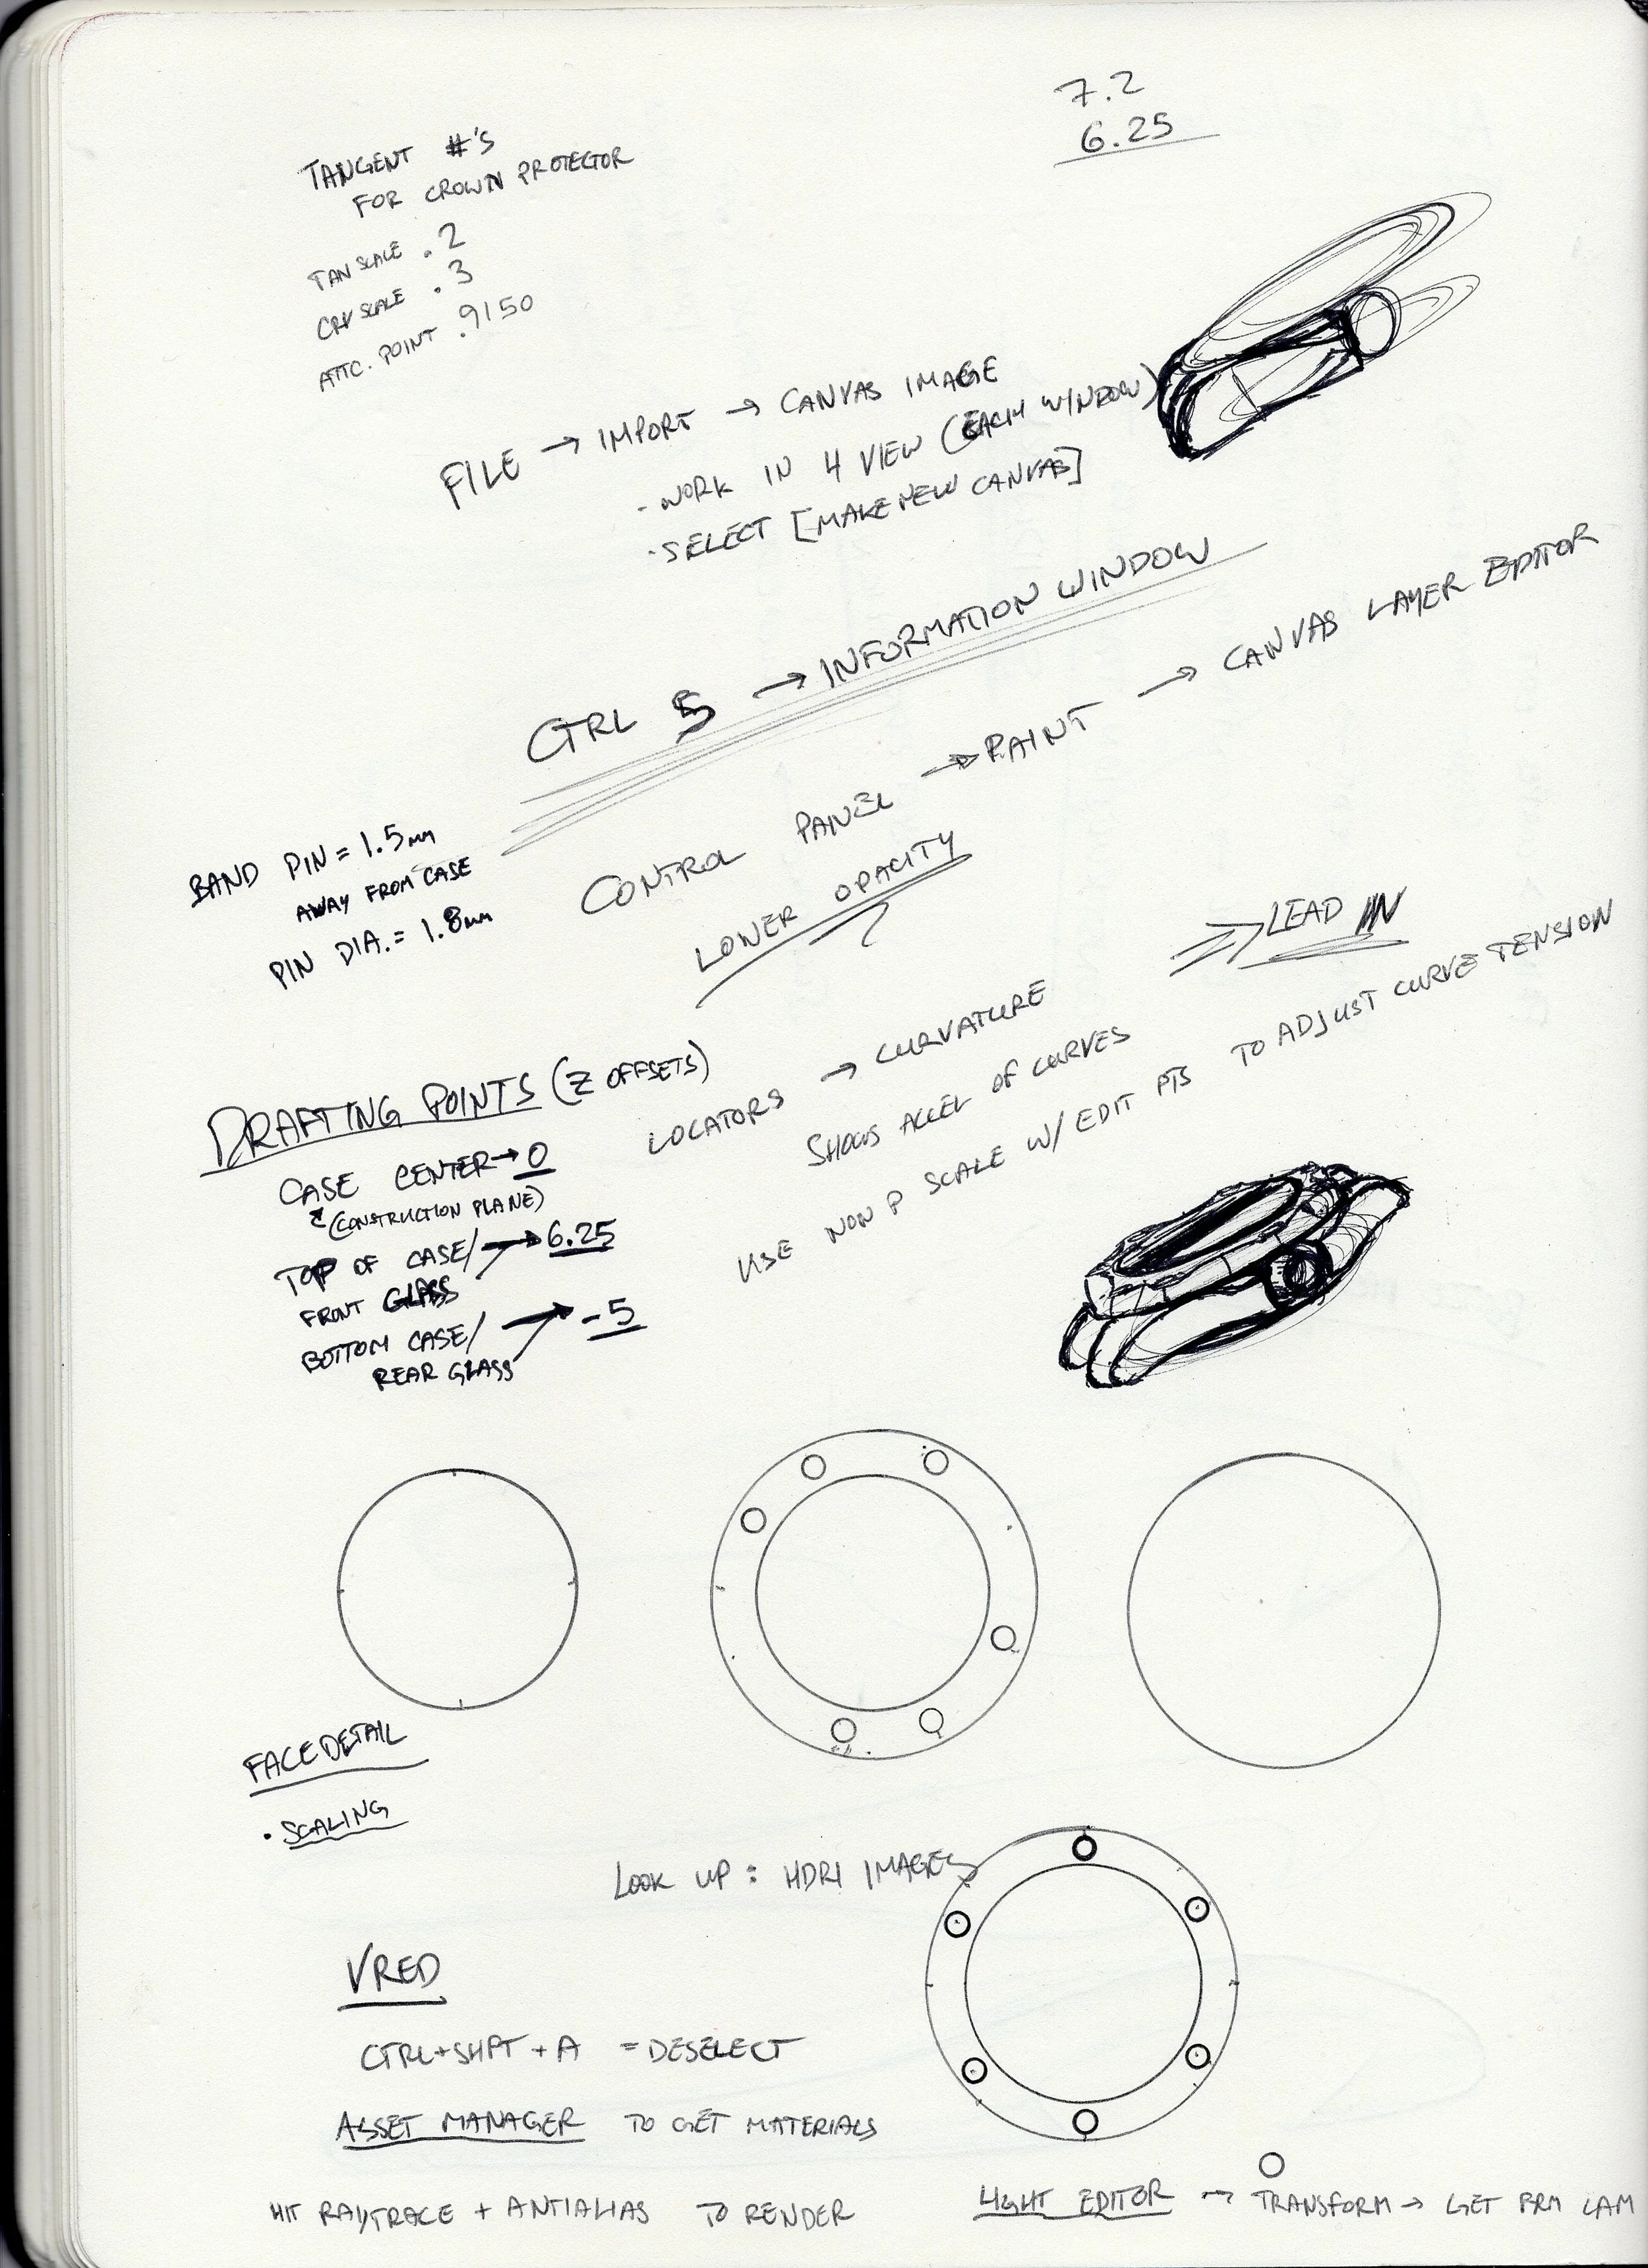 7.2
6.25
TANGENT #'S
FOR CROWN PROTECTOR
TAN SCALE .2
CRV SCALE .3
ATTC. POINT .9150
FILE → IMPORT → CANVAS IMAGE
- WORK IN 4 VIEW (EACH WINDOW)
· SELECT [MAKE NEW CANVAS]
CTRL 5 → INFORMATION WINDOW
CONTROL PANEL → PAINT → CANVAS LAYER EDITOR
LOWER OPACITY
BAND PIN = 1.5mm
AWAY FROM CASE
PIN DIA. = 1.8mm
LEAD IN
LOCATORS → CURVATURE
SHOWS ACCEL OF CURVES
USE NON P SCALE W/ EDIT PTS TO ADJUST CURVE TENSION
DRAFTING POINTS (Z OFFSETS)
CASE CENTER → 0
(CONSTRUCTION PLANE)
TOP OF CASE/ → 6.25
FRONT GLASS
BOTTOM CASE/ → -5
REAR GLASS
FACE DETAIL
· SCALING
LOOK UP : HDRI IMAGES
VRED
CTRL+SHFT + A = DESELECT
ASSET MANAGER TO GET MATERIALS
HIT RAYTRACE + ANTIALIAS TO RENDER
LIGHT EDITOR → TRANSFORM → GET FRM CAM